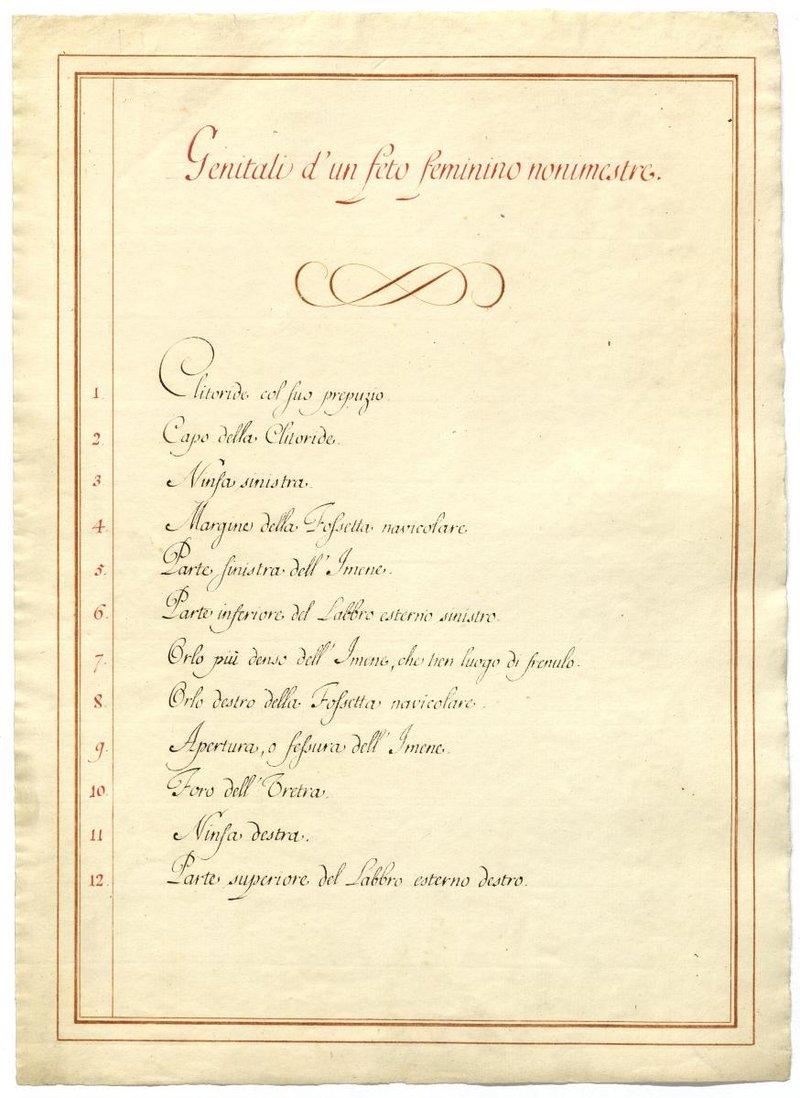 Genitali d'un feto feminino nonimestre.
1. Clitoride col suo prepuzio.
2. Capo della Clitoride.
3 Ninfa sinistra.
4. Margine della Fossetta navicolare
5. Parte sinistra dell'Imene.
6. Parte inferiore del Labbro esterno sinistro.
7. Orlo più denso dell'Imene, che tien luogo di frenulo.
8 Orlo destro della Fossetta navicolare.
9. Apertura, o fessura dell'Imene.
10. Foro dell'Uretra.
11 Ninfa destra.
12. Parte superiore del Labbro esterno destro.